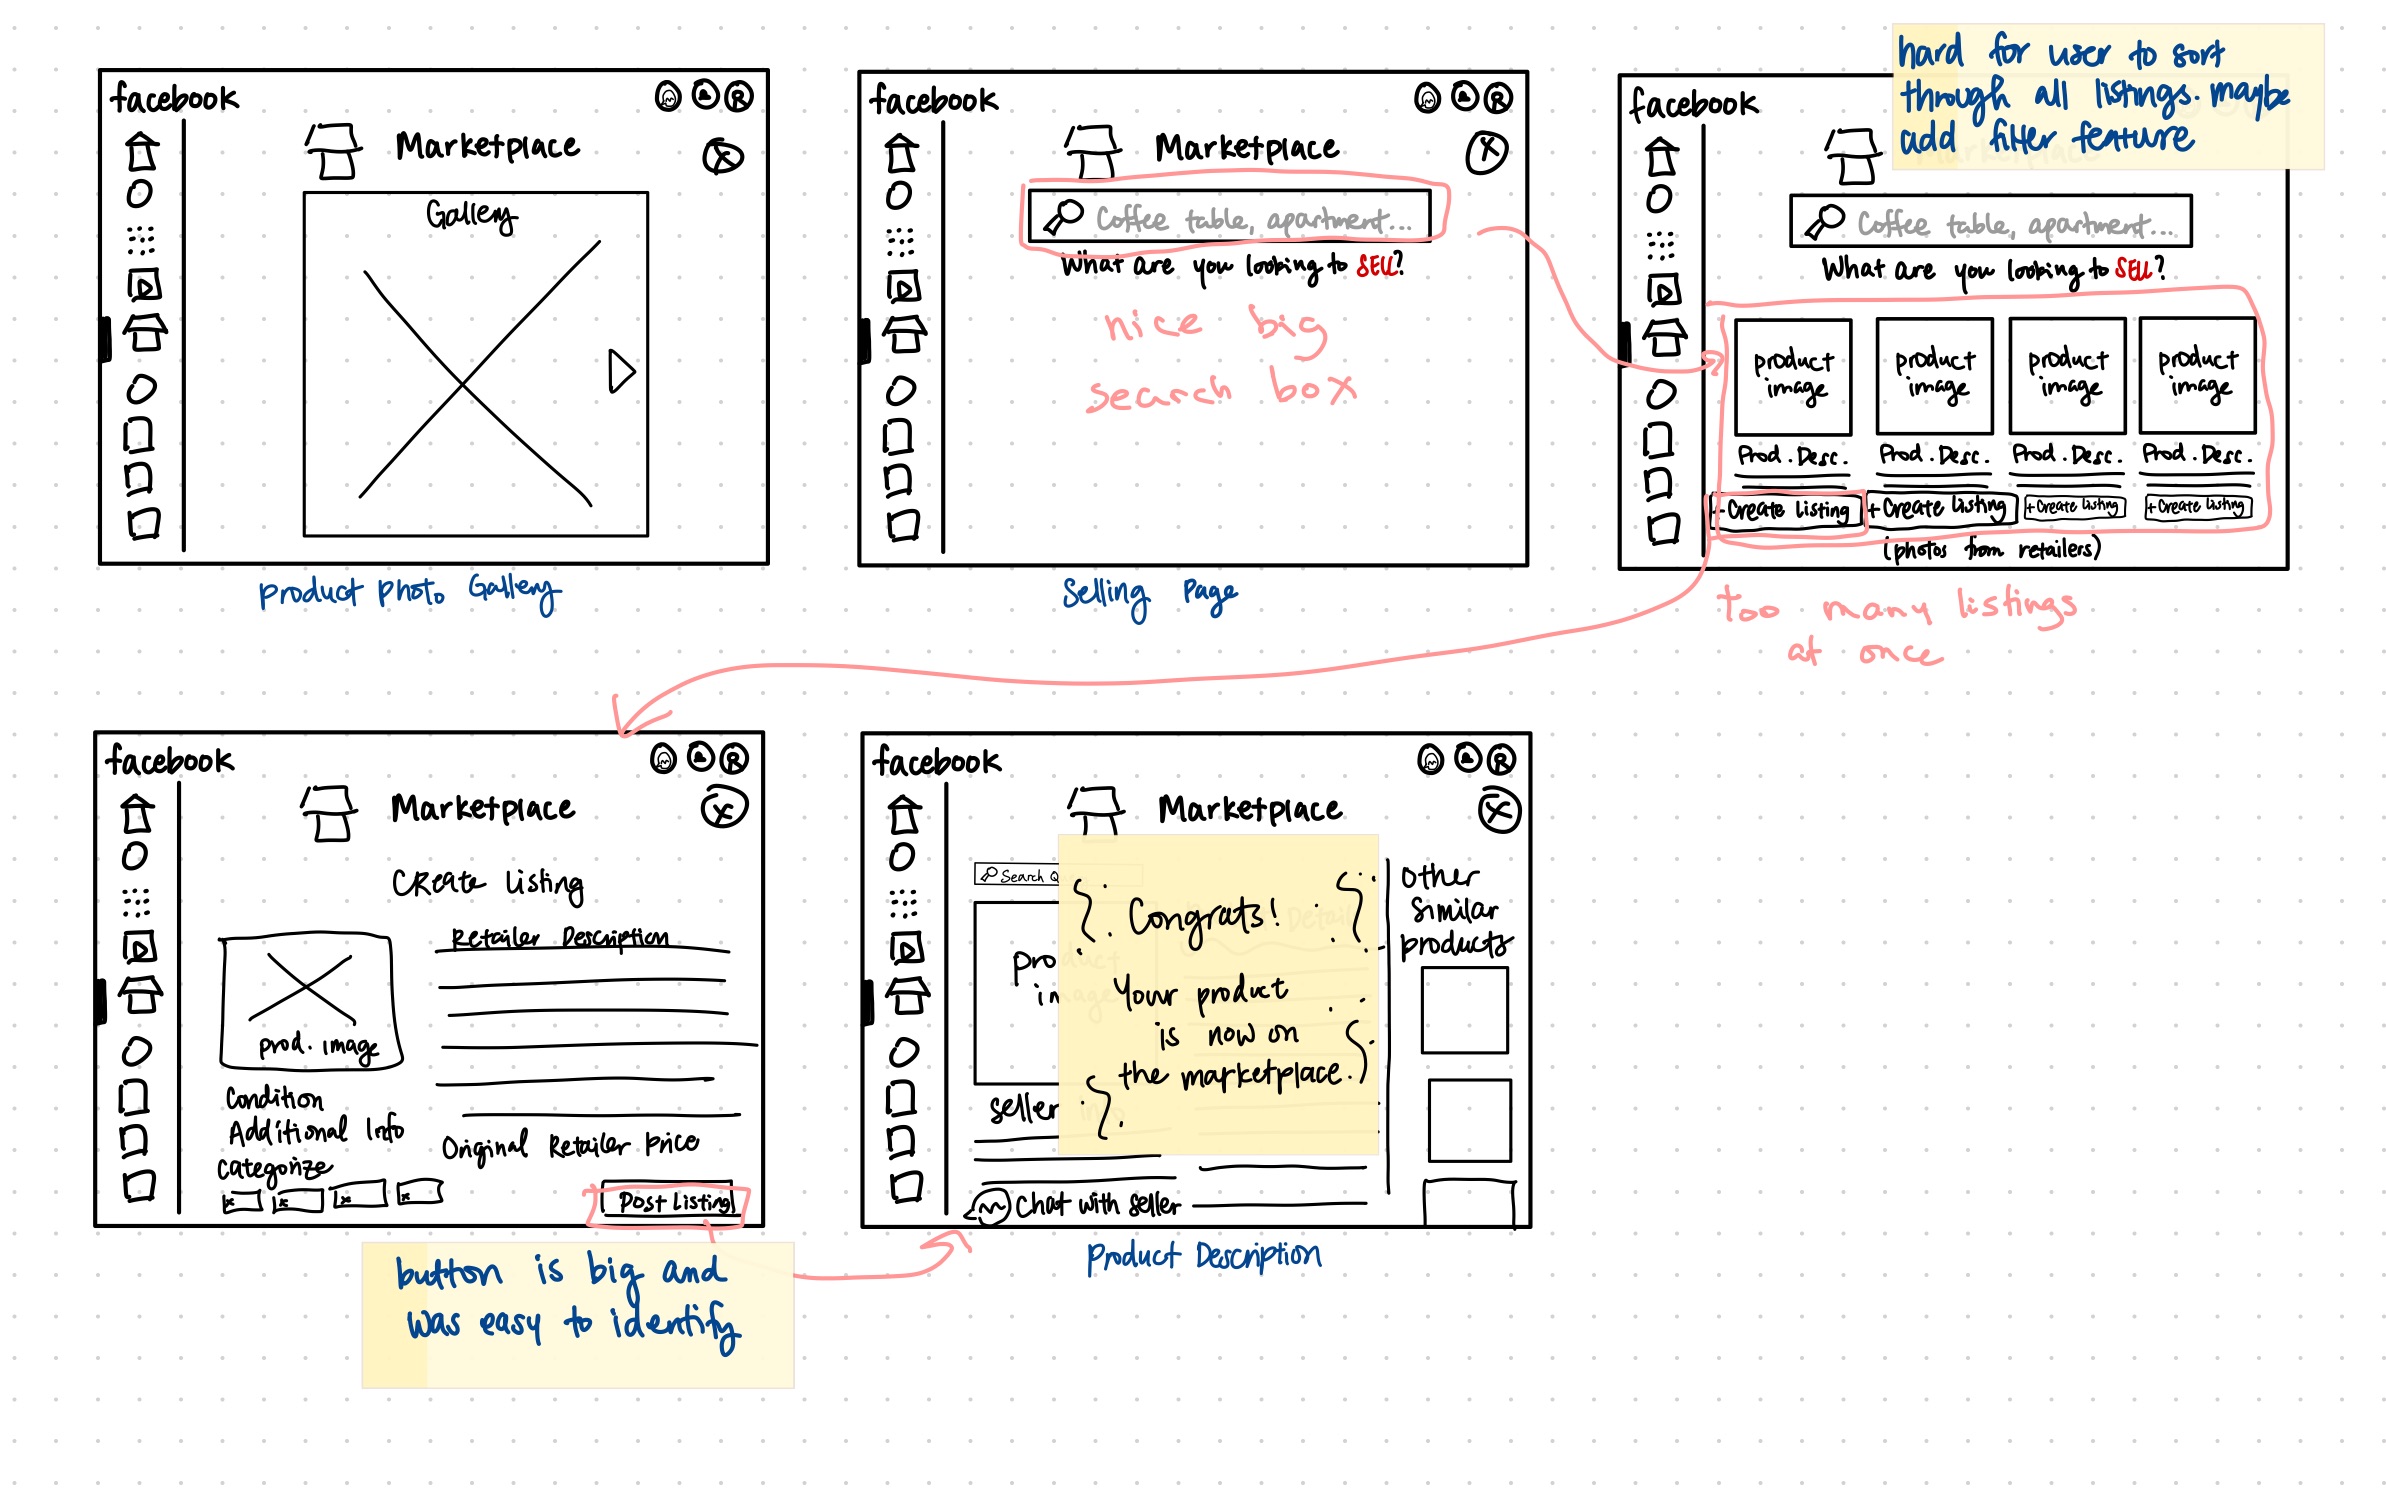 facebook
R
Marketplace
X
Gallery
product photo Gallery
facebook
R
Marketplace
X
Coffee table, apartment...
What are you looking to SELL?
nice big
search box
Selling Page
hard for user to sort
through all listings. maybe
add filter feature
facebook
Marketplace
Coffee table, apartment...
What are you looking to SELL?
product image
product image
product image
product image
Prod. Desc.
Prod. Desc.
Prod. Desc.
Prod. Desc.
+Create Listing
+Create Listing
+Create Listing
+Create Listing
(photos from retailers)
too many listings
at once
facebook
R
Marketplace
X
Create Listing
Retailer Description
prod. image
Condition
Additional Info
Categorize
x x x x
Original Retailer Price
Post Listing
button is big and
was easy to identify
facebook
R
Marketplace
X
Search
product
image
Detail
Congrats!
Your product
is now on
the marketplace.
seller
Chat with seller
other
similar
products
Product Description